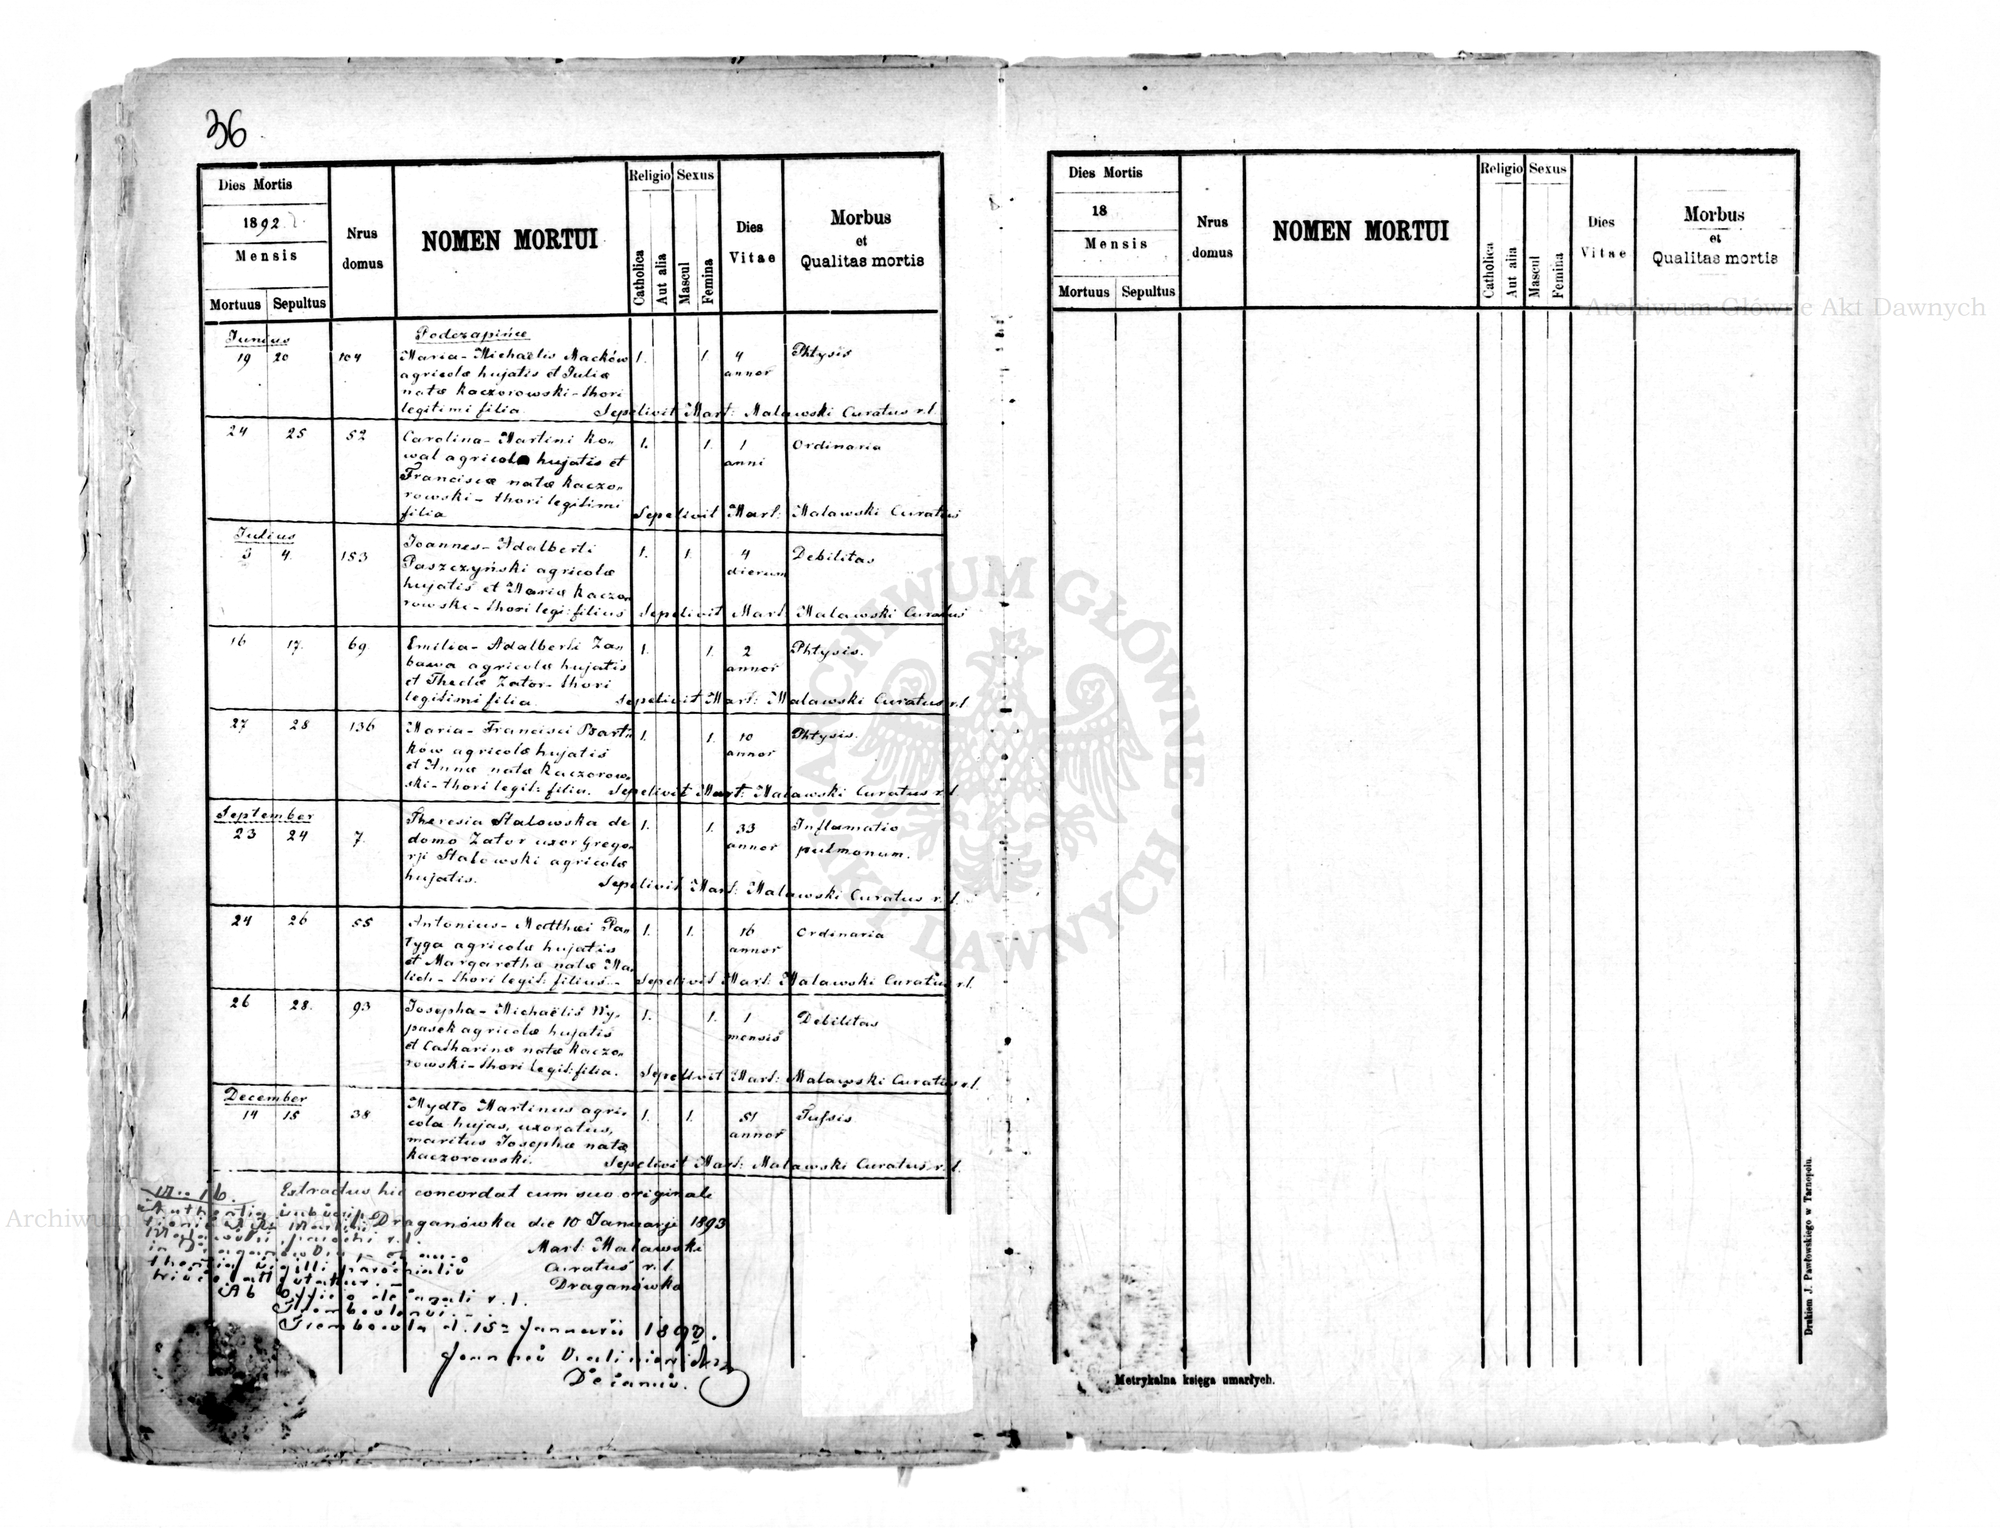 36
Dies Mortis
1892
Mensis
Mortuus Sepultus
Nrus
domus
NOMEN MORTUI
Religio
Catholica
Aut alia
Sexus
Mascul
Femina
Dies
Vitae
Morbus
et
Qualitas mortis
Junius
Podczapińce
19 20 104 Maria - Michaëlis Macków 1. 1. 4 Phtysis
agricolæ hujatis et Juliæ annor
natæ Kaczorowski - thori
legitimi filia. Sepelivit Mart: Malawski Curatus r.l.
24 25 52 Carolina - Martini Ko- 1. 1. 1 Ordinaria
wal agricolæ hujatis et anni
Franciscæ natæ Kaczo-
rowski - thori legitimi
filia Sepelivit Mart: Malawski Curatus
Julius
3 4. 153 Joannes - Adalberti 1. 1. 4 Debilitas
Paszczyński agricolæ dierum
hujatis et Mariæ Kaczo-
rowski - thori legi: filius Sepelivit Mart: Malawski Curatus
16 17. 69. Emilia - Adalberti Za- 1. 1. 2 Phtysis.
bawa agricolæ hujatis annor
et Theclæ Zator - thori
legitimi filia. Sepelivit Mart: Malawski Curatus r.l.
27 28 136 Maria - Francisci Bart- 1. 1. 10 Phtysis.
ków agricolæ hujatis annor
et Annæ natæ Kaczorow-
ski - thori legit: filia. Sepelivit Mart: Malawski Curatus r.l.
September
23 24 7. Theresia Stalowska de 1. 1. 33 Inflamatio
domo Zator uxor Grego- annor pulmonum.
rji Stalowski agricolæ
hujatis. Sepelivit Mart: Malawski Curatus r.l.
24 26 55 Antonius - Matthæi Pa- 1. 1. 16 Ordinaria
tyga agricolæ hujatis annor
et Margarethæ natæ Ma-
lich - thori legit: filius. - Sepelivit Mart: Malawski Curatus r.l.
26 28. 93 Josepha - Michaëlis Wy- 1. 1. 1 Debilitas
pasek agricolæ hujatis mensis
et Catharinæ natæ Kaczo-
rowski - thori legit: filia. Sepelivit Mart: Malawski Curatus r.l.
December
14 15 38 Mydło Martinus agri- 1. 1. 51 Tussis
cola hujas, uxoratus, annor
maritus Josephæ natæ
Kaczorowski. Sepelivit Mart: Malawski Curatus r.l.
Extradus hic concordat cum suo originali
Draganówka die 10 Januarji 1893
Mart: Malawski
Curatus r.l.
Draganówka
N. 16.
Malawski parochi r.l.
sigilli parochialis
Ab Officio decanali r.l.
Trembowla d. 15 Januarii 1893.
Joannes
Decanus.
Dies Mortis
18
Mensis
Mortuus Sepultus
Nrus
domus
NOMEN MORTUI
Religio
Catholica
Aut alia
Sexus
Mascul
Femina
Dies
Vitae
Morbus
et
Qualitas mortis
Metrykalna księga umarłych.
Drukiem J. Pawłowskiego w Tarnopolu.
Archiwum Główne Akt Dawnych
Archiwum Główne Akt Dawnych
ARCHIWUM GŁÓWNE AKT DAWNYCH